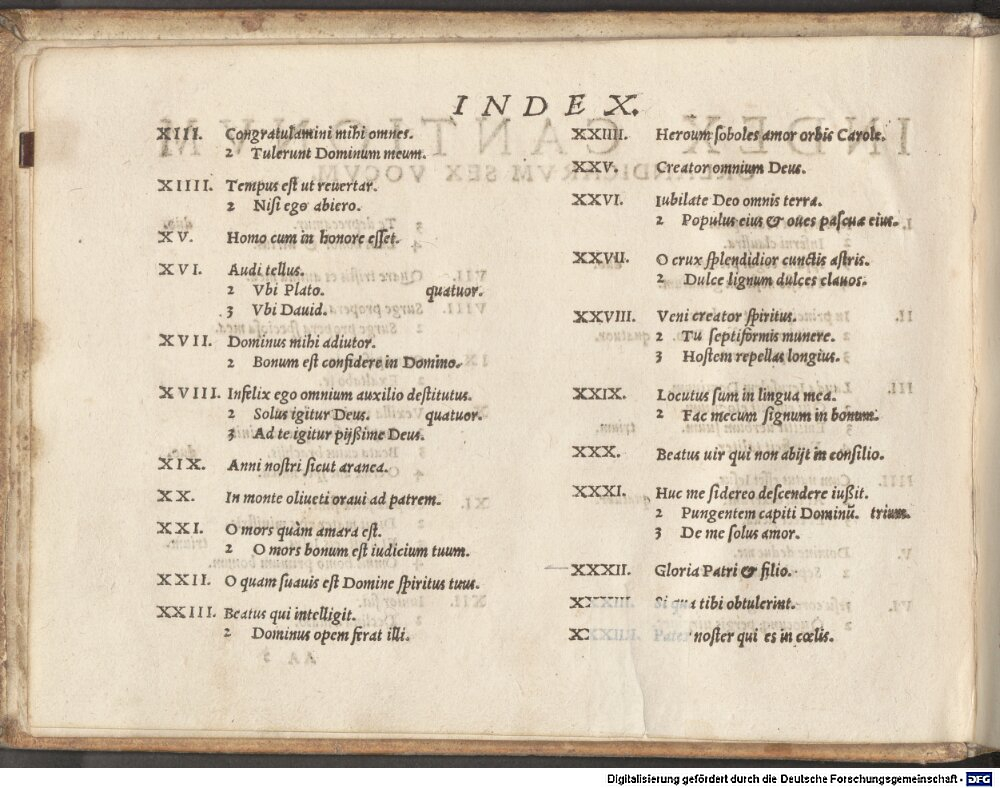 INDEX.
XIII. Congratulamini mihi omnes.
2 Tulerunt Dominum meum.
XIIII. Tempus est ut reuertar.
2 Nisi ego abiero.
XV. Homo cum in honore esset.
XVI. Audi tellus.
2 Vbi Plato. quatuor.
3 Vbi Dauid.
XVII. Dominus mihi adiutor.
2 Bonum est confidere in Domino.
XVIII. Infelix ego omnium auxilio destitutus.
2 Solus igitur Deus. quatuor.
3 Ad te igitur pijssime Deus.
XIX. Anni nostri sicut aranea.
XX. In monte oliueti oraui ad patrem.
XXI. O mors quàm amara est.
2 O mors bonum est iudicium tuum.
XXII. O quam suauis est Domine spiritus tuus.
XXIII. Beatus qui intelligit.
2 Dominus opem ferat illi.
XXIIII. Heroum soboles amor orbis Carole.
XXV. Creator omnium Deus.
XXVI. Iubilate Deo omnis terra.
2 Populus eius & oues pascuæ eius.
XXVII. O crux splendidior cunctis astris.
2 Dulce lignum dulces clauos.
XXVIII. Veni creator spiritus.
2 Tu septiformis munere.
3 Hostem repellas longius.
XXIX. Locutus sum in lingua mea.
2 Fac mecum signum in bonum.
XXX. Beatus uir qui non abijt in consilio.
XXXI. Huc me sidereo descendere iussit.
2 Pungentem capiti Dominũ. trium.
3 De me solus amor.
XXXII. Gloria Patri & filio.
XXXIII. Si qua tibi obtulerint.
XXXIIII. Pater noster qui es in cœlis.
Digitalisierung gefördert durch die Deutsche Forschungsgemeinschaft - DFG